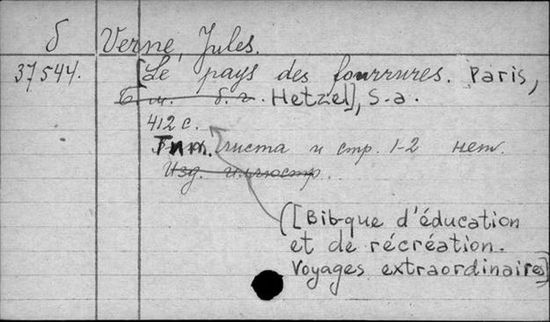 б Verne, Jules.
37544. [Le pays des fourrures. Paris,
Б. м. б. г. Hetzel], S.a.
412 с.
Тит. листа и стр. 1-2 нет.
Изд. иллюстр.
([Bib-que d'éducation
et de récréation.
Voyages extraordinaires]